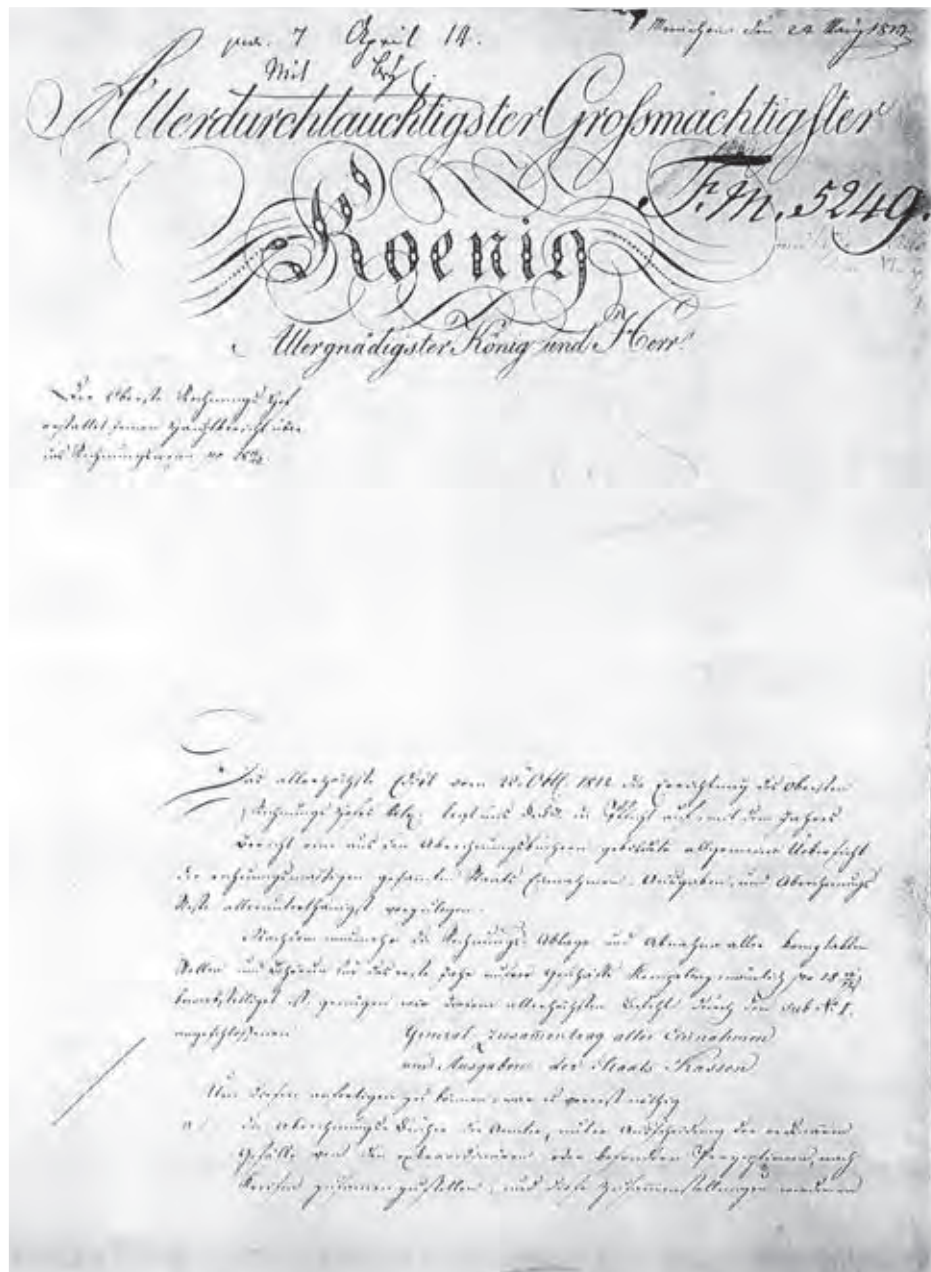 München den 24 März 1814
prs. 7 April 14.
Mit
Allerdurchlauchtigster Großmächtigster
Koenig
F.M. 5249.
Allergnädigster König und Herr!
Der Oberste Rechnungs Hof
erstattet seinen Hauptbericht über
das Rechnungswesen pro 18
Das allerhöchste Edict vom 20. Okt. 1812 die Errichtung des Obersten
Rechnungs Hofes betr. legt uns die Pflicht auf, mit dem Jahres
Bericht eine aus den Abrechnungsbüchern gebildete allgemeine Uebersicht
der rechnungsmässigen gesamten Staats Einnahmen, Ausgaben, und Abrechnungs
Reste allerunterthänigst vorzulegen.
Nachdem nunmehr die Rechnungs Ablage und Abnahme aller komptablen
Stellen und Behörden für das erste Jahr unserer Geschäfts nämlich pro 18
bewerkstelliget ist, genügen wir diesem allerhöchsten Befehle durch den sub No. 1.
angeschlossenen General-Zusammentrag aller Einnahmen
und Ausgaben der Staats Kassen
Um diesen anfertigen zu können, war es vorerst nöthig
a) die Abrechnungs Bücher der Aemter, unter Ausscheidung der ordinären
Gefälle von den extraordinären oder besondern Perzeptionen, nach
Kreisen zusammenzustellen, und diese Zusammenstellungen wiederum